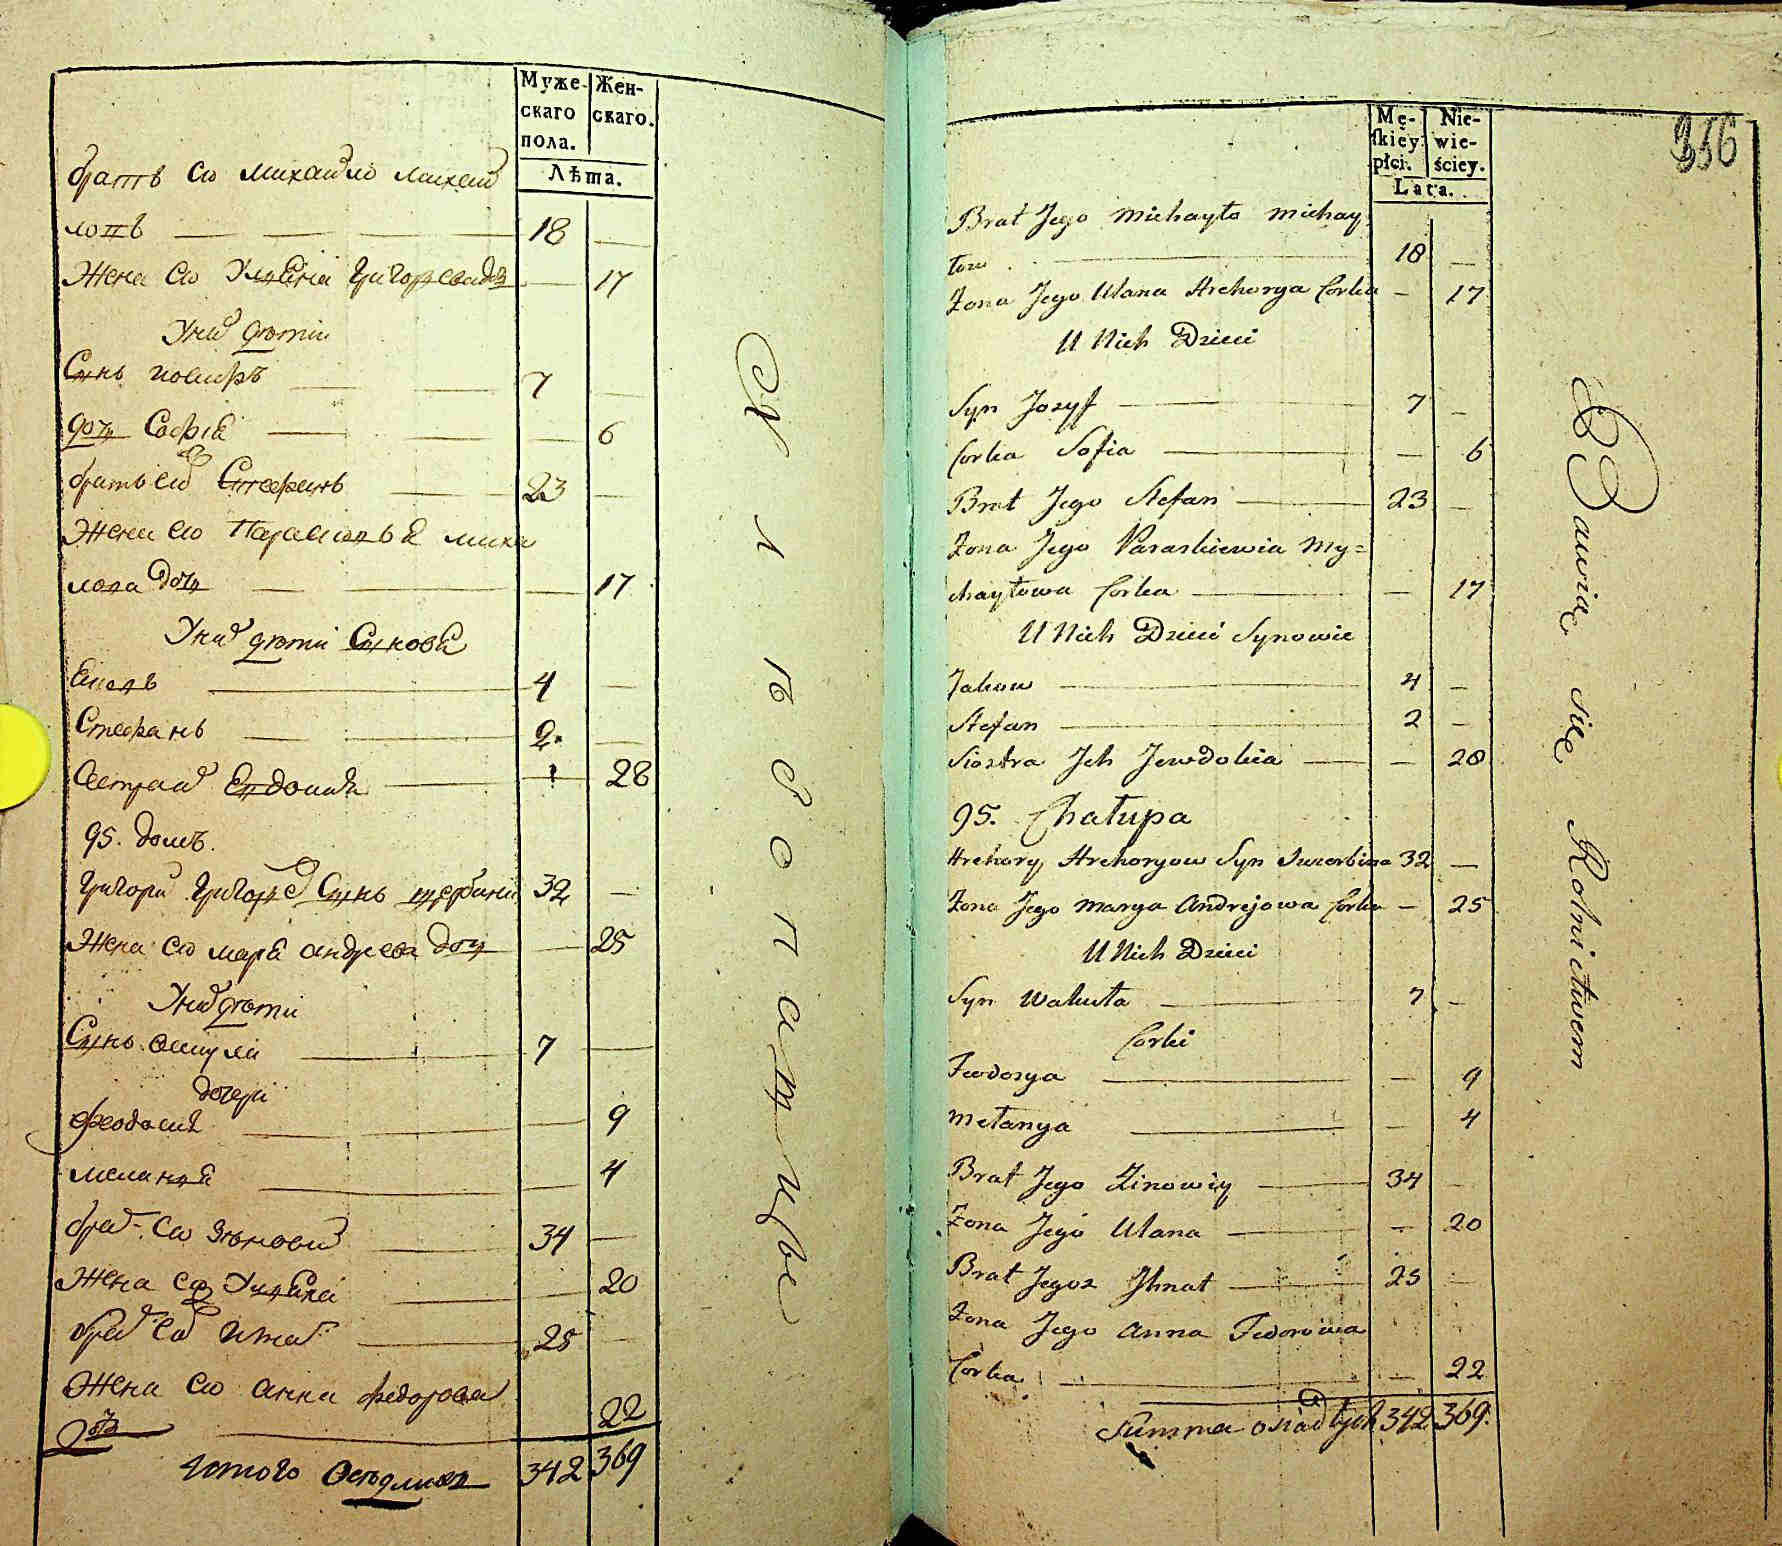 Муже-
скаго
пола.
Жен-
скаго.
Лѣта.
братъ его михайло михай
ловъ 18
Жена его Улияна григорева доч 17
У них дѣти
Сынъ иосифъ 7
дочь Софія 6
братъ его Стефанъ 23
Жена его Парасковья миха
лова дочь 17
У них дѣти Сыновя
4
Стефанъ 2.
Сестра их Евдокия 28
95. домъ.
григори григорев Сынъ щербина 32
Жена его маря андреева дочь 25
У них дѣти
Сынъ 7
дочери
феодосия 9
меланя 4
брат его Зѣнови 34
Жена его Улияна 20
брат его игнат 25
Жена его анна федорова 22
дочь
Итого Осѣдлихъ 342 369
Хлѣбопашцы
Mę-
skiey
płci.
Nie-
wie-
ściey.
Lata.
356
Brat Jego Michayło Michay
łow 18
Zona Jego Ulana Hrehorya Corka 17
U Nich Dzieci
Syn Jozyf 7
Corka Sofia 6
Brat Jego Stefan 23
Zona Jego Paraskiewia My=
chayłowa Corka 17
U Nich Dzieci Synowie
Jakow 4
Stefan 2
Siostra Jch Jewdokia 28
95. Chałupa
Hrehory Hrehoryow Syn Szczerbina 32
Zona Jego Marya Andrejowa Corka 25
U Nich Dzieci
Syn Wakuła 7
Corki
Feodosya 9
Mełanya 4
Brat Jego Zinowiy 34
Zona Jego Ulana 20
Brat Jegoz Jhnat 25
Zona Jego Anna Fedorowa
Corka 22
Summa osiadłych 342 369.
Bawią się Rolnictwem